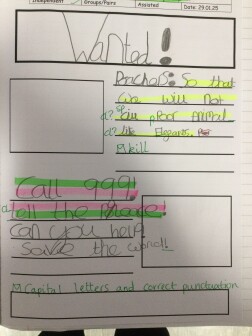 Independent Groups/Pairs Assisted Date: 29.01.25
Wanted!
Poachers: So that
we will not
poor animal
like Elephants.
skill
Call 999!
tell the Please!
can you help
Save the world!!
Capital letters and correct punctuation